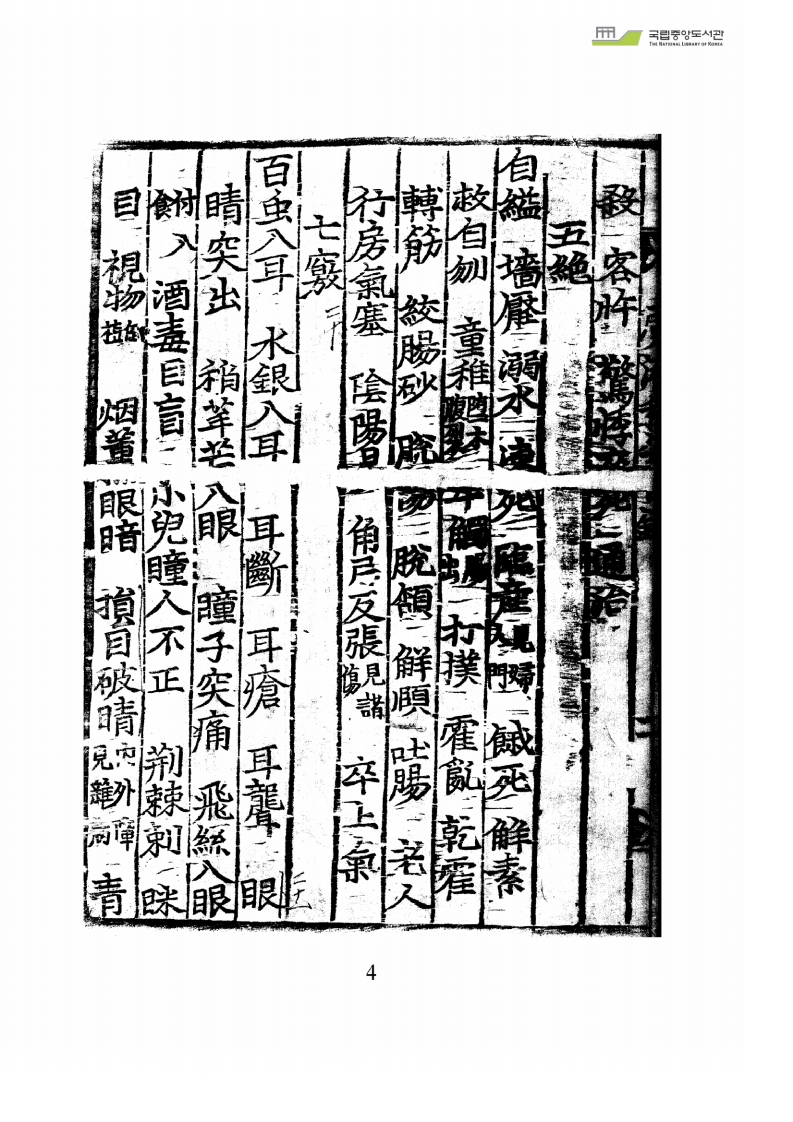 국립중앙도서관
THE NATIONAL LIBRARY OF KOREA
殺 客忤 驚悸 死 通治
五絶
自縊 墻壓 溺水 凍死 臨産見婦人門 餓死 解素
救自刎 童稚墮木腹裂 卒觸腸出 打撲 霍亂 乾霍
轉筋 絞腸砂 脫陽 脫頷 解頤 吐腸 老人
行房氣塞 陰陽易 角弓反張見諸傷 卒上氣
七竅 二十
百虫入耳 水銀入耳 耳斷 耳瘡 耳聾 眼 二十一
睛突出 稻芒入眼 瞳子突痛 飛絲入眼
付入 酒毒目盲 小兒瞳人不正 荆棘刺 眯
目 視物 烟薰 眼暗 損目破睛內外障見雜病 青
4